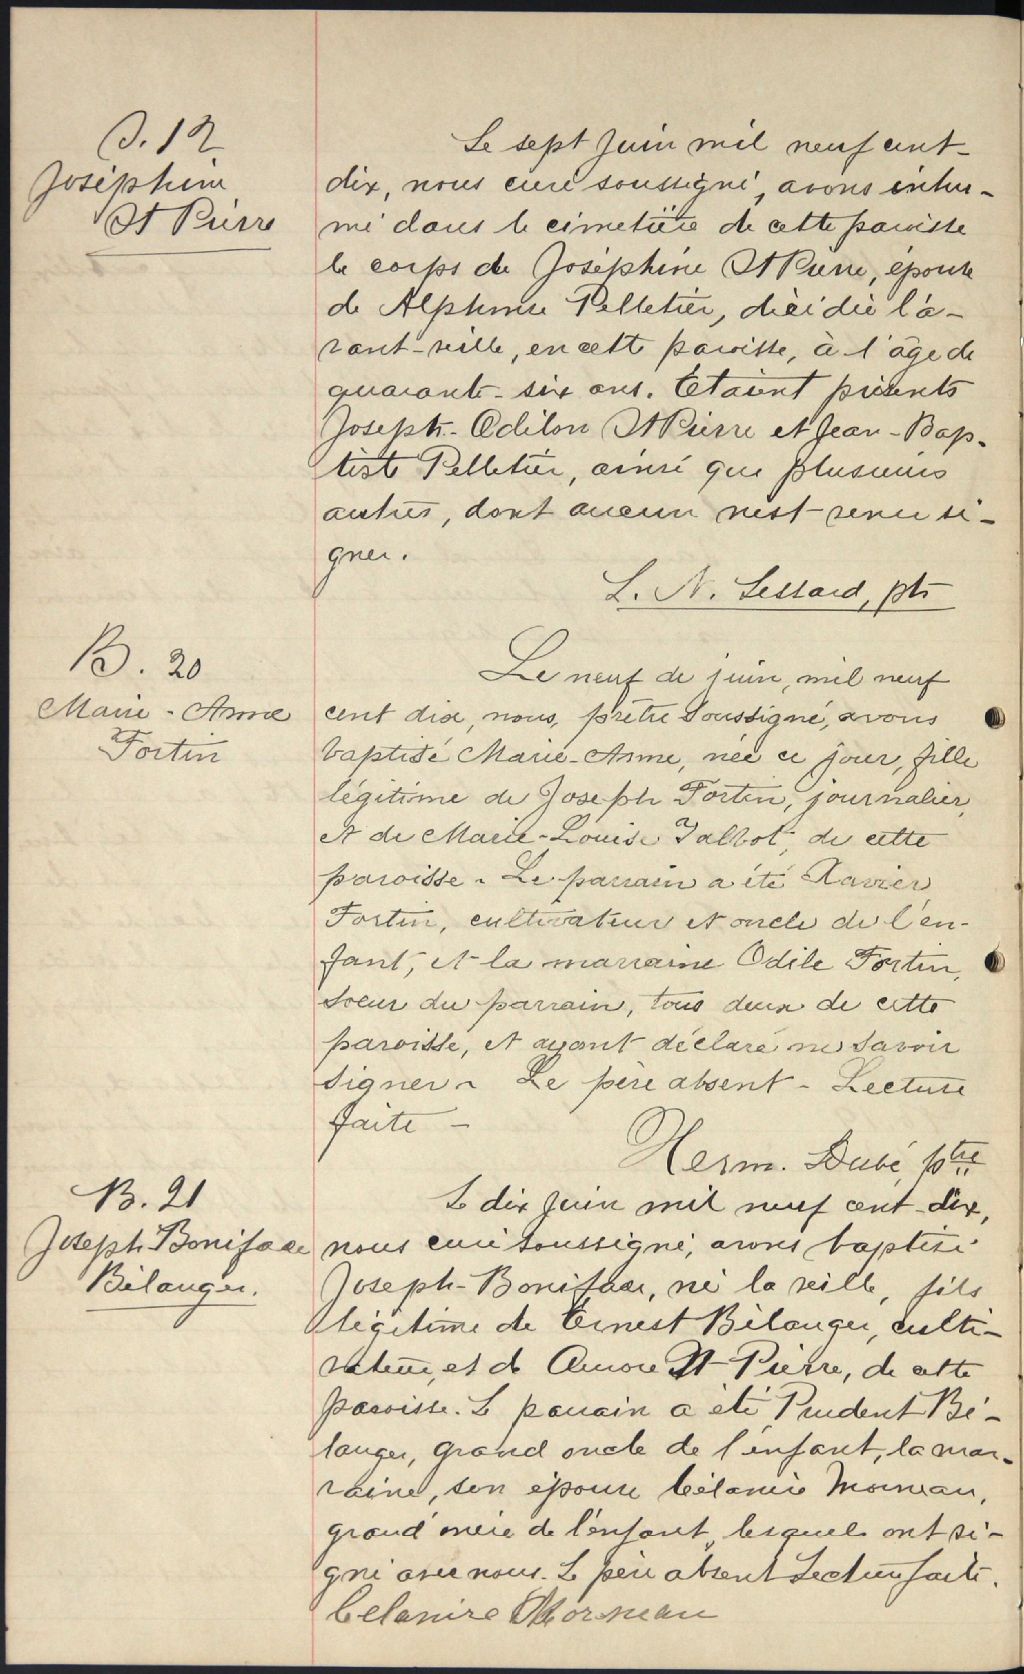 S. 12
Joséphine
St Pierre
Le sept juin mil neuf cent-
dix, nous curé soussigné, avons inhu-
mé dans le cimetière de cette paroisse
le corps de Joséphine St Pierre, épouse
de Alphonse Pelletier, décédée l'a-
vant-veille, en cette paroisse, à l'âge de
quarante-six ans. Etaient présents
Joseph-Odilon St Pierre et Jean-Bap-
tiste Pelletier, ainsi que plusieurs
autres, dont aucun n'est venu si-
gner.
L. N. Lessard, ptr
B. 20
Marie-Anne
Fortin
Le neuf de juin, mil neuf
cent dix, nous, prêtre soussigné, avons
baptisé Marie-Anne, née ce jour, fille
légitime de Joseph Fortin, journalier,
et de Marie-Louise Talbot, de cette
paroisse - Le parrain a été Xavier
Fortin, cultivateur et oncle de l'en-
fant, et la marraine Odile Fortin,
soeur du parrain, tous deux de cette
paroisse, et ayant déclaré ne savoir
signer - Le père absent - Lecture
faite -
Herm. Dubé, ptre
B. 21
Joseph-Boniface
Bélanger.
Le dix juin mil neuf cent-dix,
nous curé soussigné, avons baptisé
Joseph-Boniface, né la veille, fils
légitime de Ernest Bélanger, culti-
vateur, et de Aurore St-Pierre, de cette
paroisse. Le parrain a été Prudent Bé-
langer, grand oncle de l'enfant, la mar-
raine, son épouse Célanire Morneau,
grand'mère de l'enfant, lesquels ont si-
gné avec nous. Le père absent Lecture faite.
Celanire Morneau